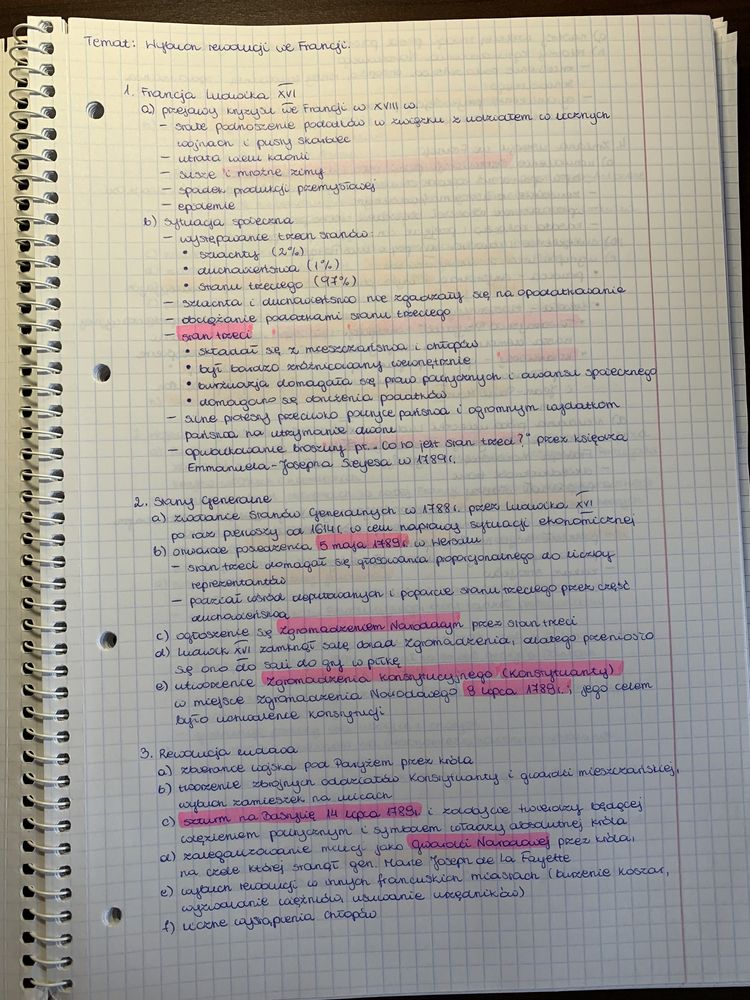 Temat: Wybuch rewolucji we Francji.
1. Francja Ludwika XVI
a) przejawy kryzysu we Francji w XVIII w.
– stałe podnoszenie podatków w związku z udziałem w licznych
wojnach i pusty skarbiec
– utrata wielu kolonii
– susze i mroźne zimy
– spadek produkcji przemysłowej
– epidemie
b) sytuacja społeczna
– występowanie trzech stanów:
• szlachty (2%)
• duchowieństwa (1%)
• stanu trzeciego (97%)
– szlachta i duchowieństwo nie zgadzały się na opodatkowanie
– obciążanie podatkami stanu trzeciego
– stan trzeci
• składał się z mieszczaństwa i chłopów
• był bardzo zróżnicowany wewnętrznie
• burżuazja domagała się praw politycznych i awansu społecznego
• domagano się obniżenia podatków
– silne protesty przeciwko polityce państwa i ogromnym wydatkom
państwa na utrzymanie dworu
– opublikowanie broszury pt. „Co to jest stan trzeci?" przez księdza
Emmanuela-Josepha Sieyèsa w 1789r.
2. Stany Generalne
a) zwołanie Stanów Generalnych w 1788r. przez Ludwika XVI
po raz pierwszy od 1614r. w celu naprawy sytuacji ekonomicznej
b) otwarcie posiedzenia 5 maja 1789r. w Wersalu
– stan trzeci domagał się głosowania proporcjonalnego do liczby
reprezentantów
– podział wśród deputowanych i poparcie stanu trzeciego przez część
duchowieństwa
c) ogłoszenie się Zgromadzeniem Narodowym przez stan trzeci
d) Ludwik XVI zamknął salę obrad Zgromadzenia, dlatego przeniosło
się ono do sali do gry w piłkę
e) utworzenie Zgromadzenia Konstytucyjnego (Konstytuanty)
w miejsce Zgromadzenia Narodowego 9 lipca 1789r.; jego celem
było uchwalenie konstytucji
3. Rewolucja ludowa
a) zbieranie wojska pod Paryżem przez króla
b) tworzenie zbrojnych oddziałów Konstytuanty i gwardii mieszczańskiej,
wybuch zamieszek na ulicach
c) szturm na Bastylię 14 lipca 1789r. i zdobycie twierdzy będącej
więzieniem politycznym i symbolem władzy absolutnej króla
d) zalegalizowanie milicji jako Gwardii Narodowej przez króla,
na czele której stanął gen. Marie Joseph de La Fayette
e) wybuch rewolucji w innych francuskich miastach (burzenie koszar,
wyzwalanie więźniów, usuwanie urzędników)
f) liczne wystąpienia chłopów